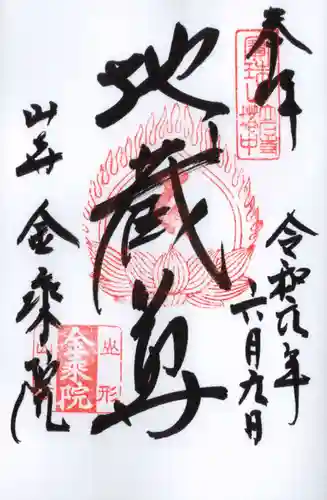 奉拝
令和六年
六月九日
地蔵尊
山寺
金乗院
金乗院
山形